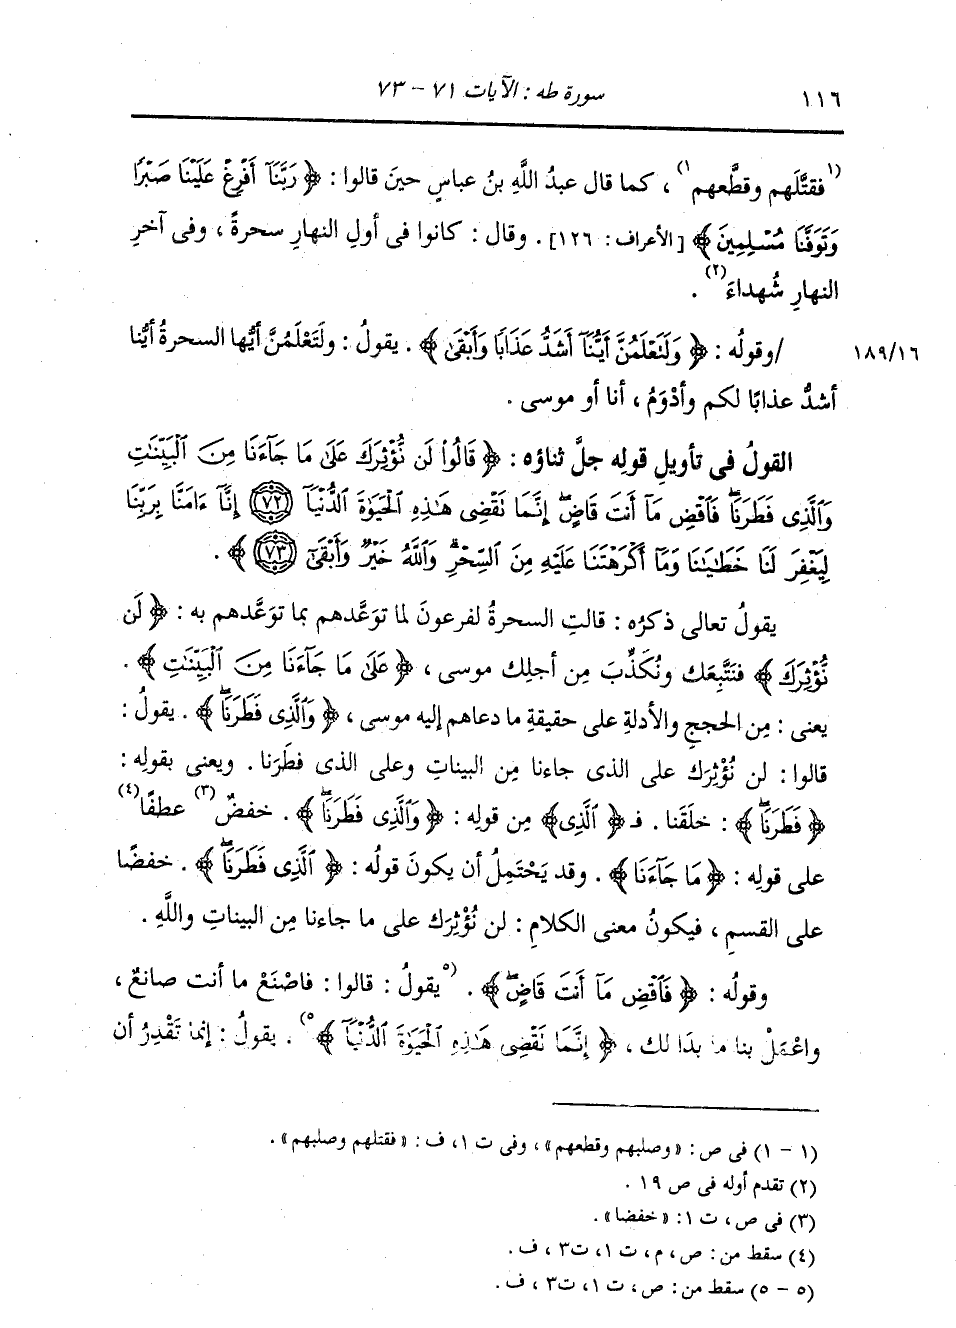 ١١٦ سورة طه : الآيات ٧١ - ٧٣
(١ فقتَّلَهم وقطَّعهم ١) ، كما قال عبدُ اللَّهِ بنُ عباسٍ حينَ قالوا : ﴿ رَبَّنَآ أَفْرِغْ عَلَيْنَا صَبْرًا
وَتَوَفَّنَا مُسْلِمِينَ ﴾ [ الأعراف : ١٢٦] . وقال : كانوا فى أولِ النهارِ سحرةً ، وفى آخرِ
النهارِ شُهداءَ (٢) .
١٨٩/١٦ /وقولُه : ﴿ وَلَتَعْلَمُنَّ أَيُّنَآ أَشَدُّ عَذَابًا وَأَبْقَىٰ ﴾ . يقولُ : ولَتَعْلَمُنَّ أيُّها السحرةُ أيُّنا
أشدُّ عذابًا لكم وأدْوَمُ ، أنا أو موسى .
القولُ فى تأويلِ قولِه جلَّ ثناؤه : ﴿ قَالُوا۟ لَن نُّؤْثِرَكَ عَلَىٰ مَا جَآءَنَا مِنَ ٱلْبَيِّنَٰتِ
وَٱلَّذِى فَطَرَنَا ۖ فَٱقْضِ مَآ أَنتَ قَاضٍ ۖ إِنَّمَا تَقْضِى هَٰذِهِ ٱلْحَيَوٰةَ ٱلدُّنْيَآ ﴿٧٢﴾ إِنَّآ ءَامَنَّا بِرَبِّنَا
لِيَغْفِرَ لَنَا خَطَٰيَٰنَا وَمَآ أَكْرَهْتَنَا عَلَيْهِ مِنَ ٱلسِّحْرِ ۗ وَٱللَّهُ خَيْرٌ وَأَبْقَىٰٓ ﴿٧٣﴾ ﴾ .
يقولُ تعالى ذكرُه : قالتِ السحرةُ لفرعونَ لما توعَّدهم بما توعَّدهم به : ﴿ لَن
نُّؤْثِرَكَ ﴾ فنَتَّبِعَك ونُكَذِّبَ مِن أجلِك موسى ، ﴿ عَلَىٰ مَا جَآءَنَا مِنَ ٱلْبَيِّنَٰتِ ﴾ .
يعنى : مِن الحججِ والأدلةِ على حقيقةِ ما دعاهم إليه موسى ، ﴿ وَٱلَّذِى فَطَرَنَا ۖ ﴾ . يقولُ :
قالوا : لن نُؤْثِرَك على الذى جاءنا مِن البيناتِ وعلى الذى فطَرَنا . ويعنى بقولِه :
﴿ فَطَرَنَا ۖ ﴾ : خلَقَنا . فـ ﴿ ٱلَّذِى ﴾ مِن قولِه : ﴿ وَٱلَّذِى فَطَرَنَا ۖ ﴾ . خفضٌ (٣) عطفًا (٤)
على قولِه : ﴿ مَا جَآءَنَا ﴾ . وقد يَحْتَمِلُ أن يكونَ قولُه : ﴿ ٱلَّذِى فَطَرَنَا ۖ ﴾ . خفضًا
على القسمِ ، فيكونُ معنى الكلامِ : لن نُؤْثِرَك على ما جاءنا مِن البيناتِ واللَّهِ .
وقولُه : ﴿ فَٱقْضِ مَآ أَنتَ قَاضٍ ۖ ﴾ . (٥ يقولُ : قالوا : فاصْنَعْ ما أنت صانعٌ ،
واعْمَلْ بنا ما بدَا لك ، ﴿ إِنَّمَا تَقْضِى هَٰذِهِ ٱلْحَيَوٰةَ ٱلدُّنْيَآ ﴾ ٥) . يقولُ : إنما تَقْدِرُ أن
(١ - ١) فى ص : «وصلبهم وقطعهم» ، وفى ت ١، ف : «فقتلهم وصلبهم» .
(٢) تقدم أوله فى ص ١٩ .
(٣) فى ص ، ت ١: «خفضا» .
(٤) سقط من : ص ، م ، ت ١، ت٣ ، ف .
(٥ - ٥) سقط من : ص ، ت ١، ت٣ ، ف .